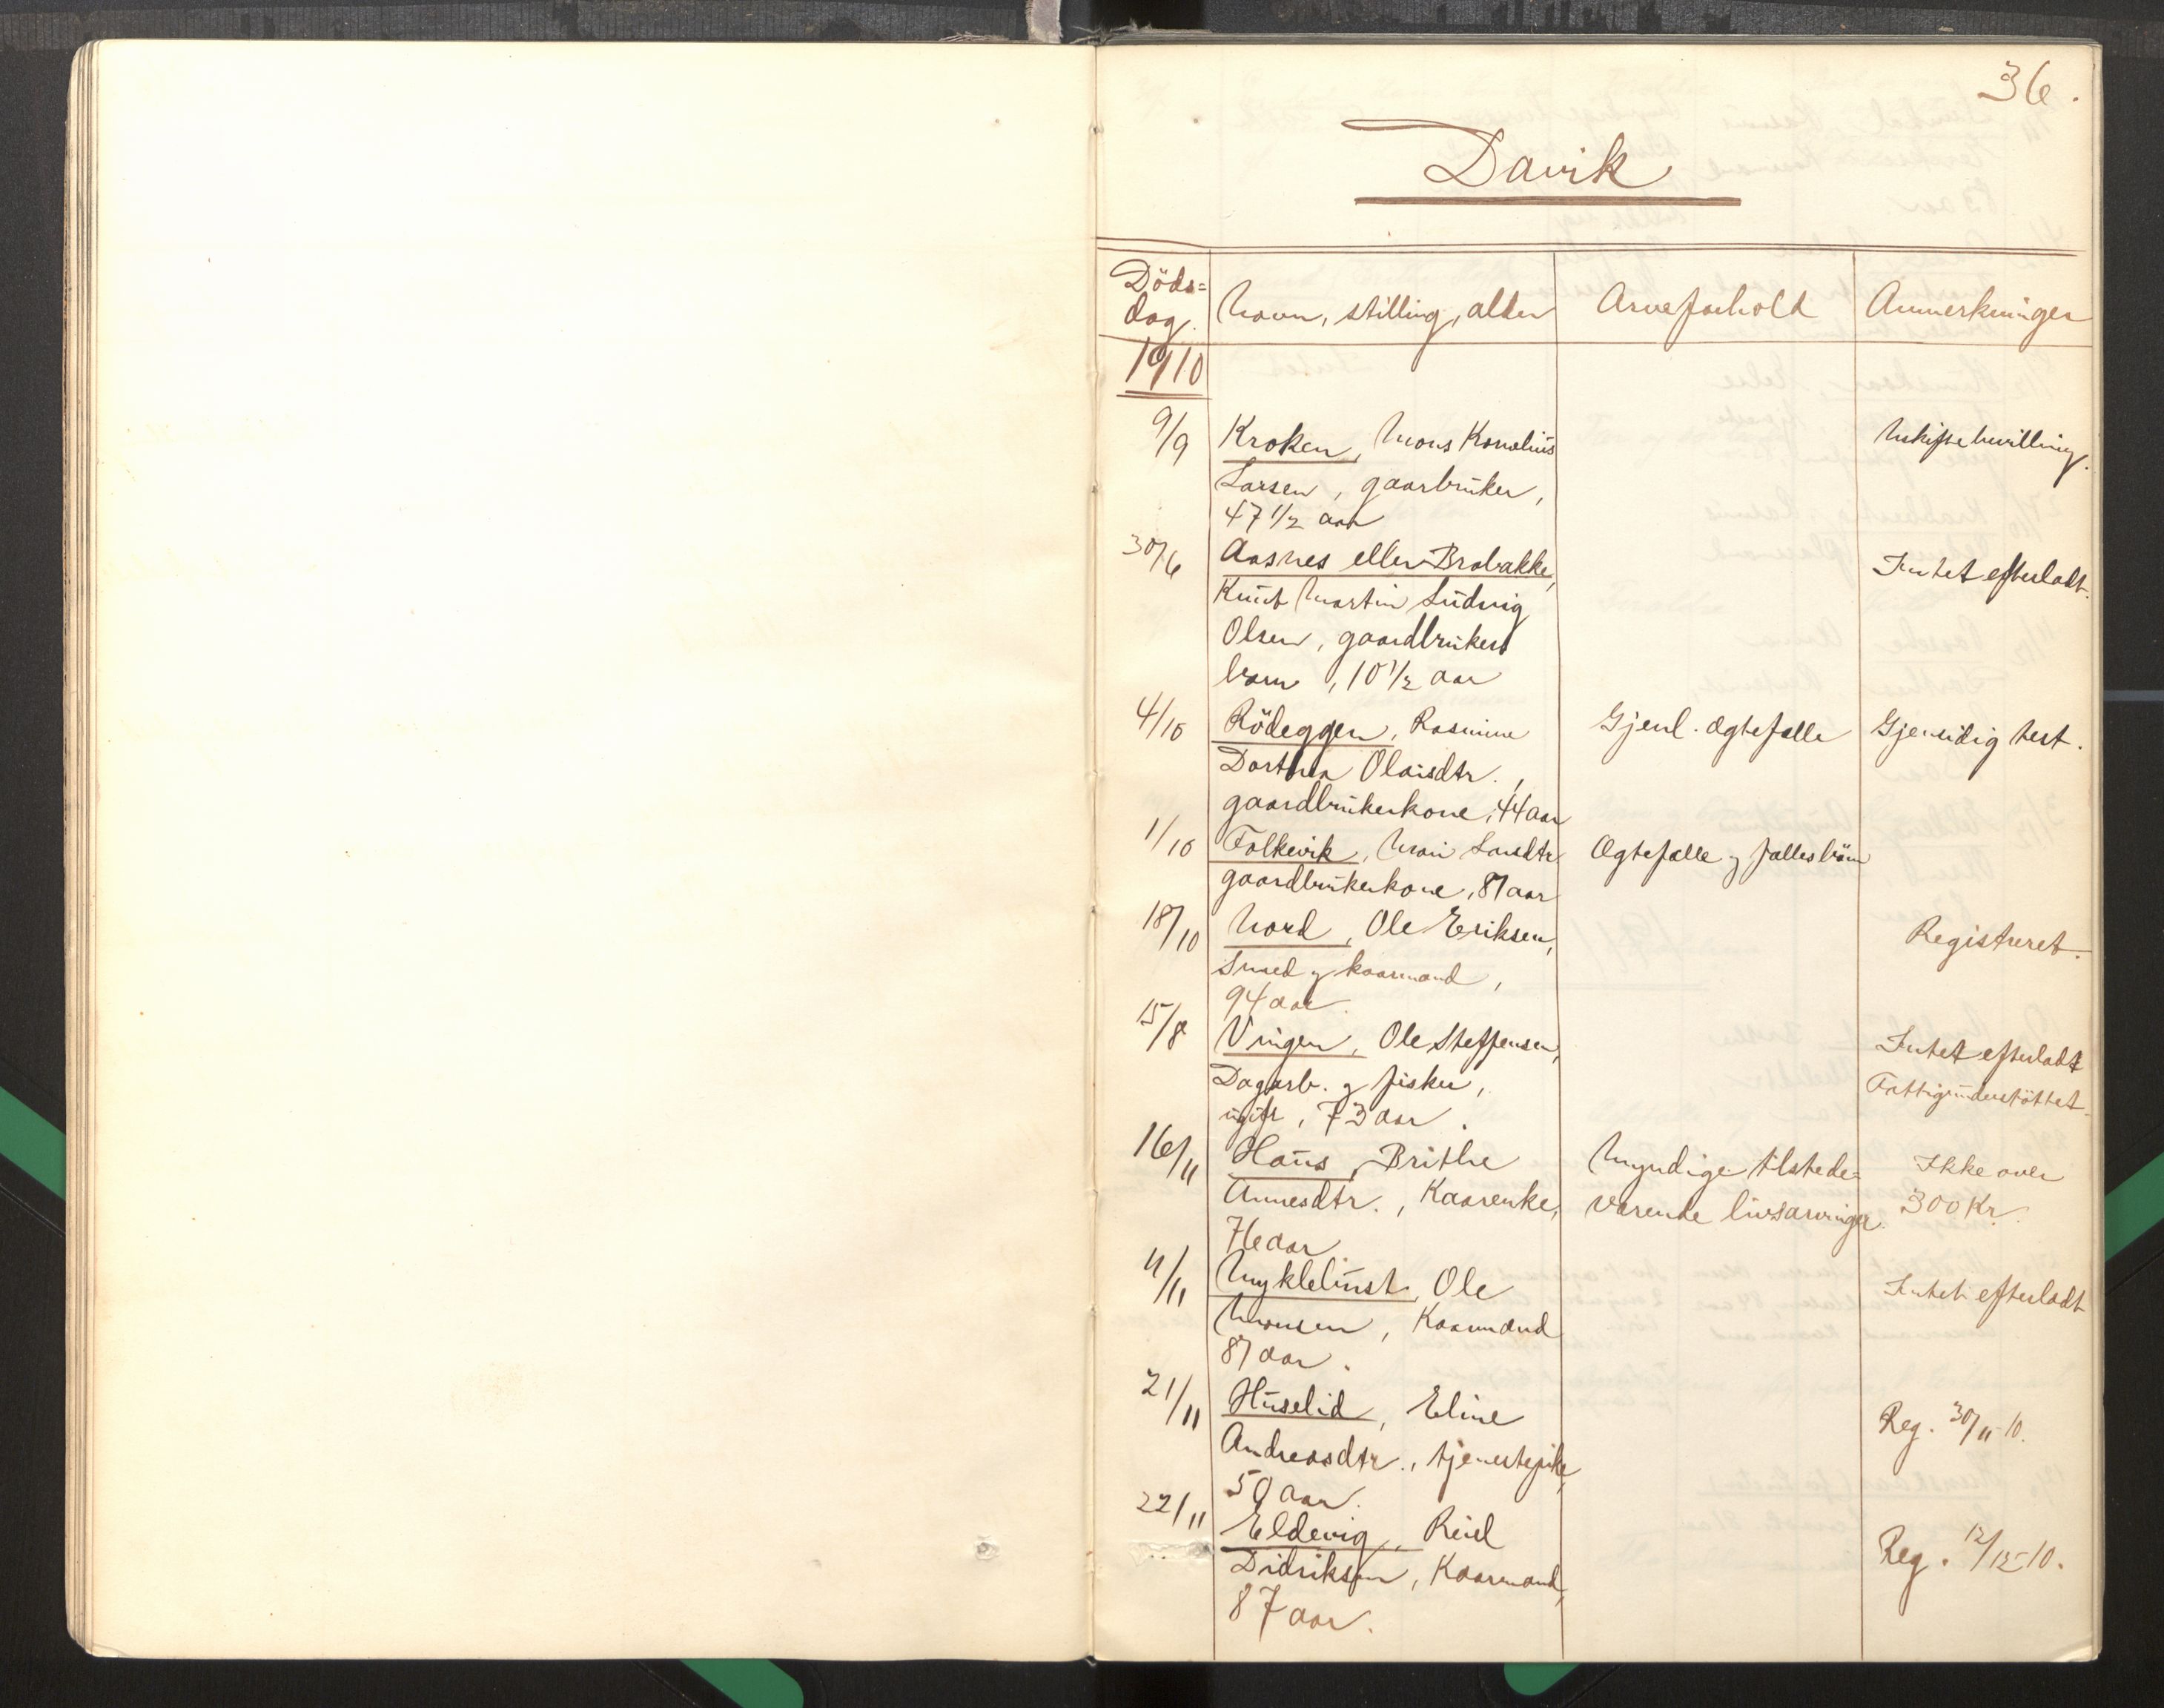 36.
Davik
Döds=
dag.
Navn, stilling, alder
Arveforhold
Anmerkninger
1910
9/9 Kroken, Mons Kornelius Uskiftebevilling.
Larsen, gaarbruker,
47 1/2 aar
30/6 Aasnes eller Brobakke, Intet efterladt.
Knut Martin Ludvig
Olsen, gaardbrukers
barn, 10 1/2 aar
4/10 Rödeggen, Rasmine Gjenl. ægtefælle Gjensidig test.
Dorthea Olaisdtr.,
gaardbrukerkone, 44 aar
1/10 Folkevik, Mari Larsdtr Ægtefælle og fællesbarn
gaardbrukerkone, 87 aar
18/10 Nord, Ole Eriksen, Registreret.
Smed og kaarmand,
94 aar.
15/8 Vingen, Ole Steffensen, Intet efterladt
Dagarb. og fisker, Fattigunderstöttet.
ugift, 73 aar.
16/11 Haus, Brithe Myndige tilstede= Ikke over
Annesdtr., Kaarenke, værende livsarvinger. 300 Kr.
76 aar
11/11 Myklebust, Ole Intet efterladt
Monsen, Kaarmand
87 aar.
21/11 Huselid, Eline Reg. 30/11-10.
Andreasdtr., tjenestepike,
50 aar.
22/11 Eldevig, Reiel Reg. 12/12-10.
Didriksen, Kaarmand,
87 aar.